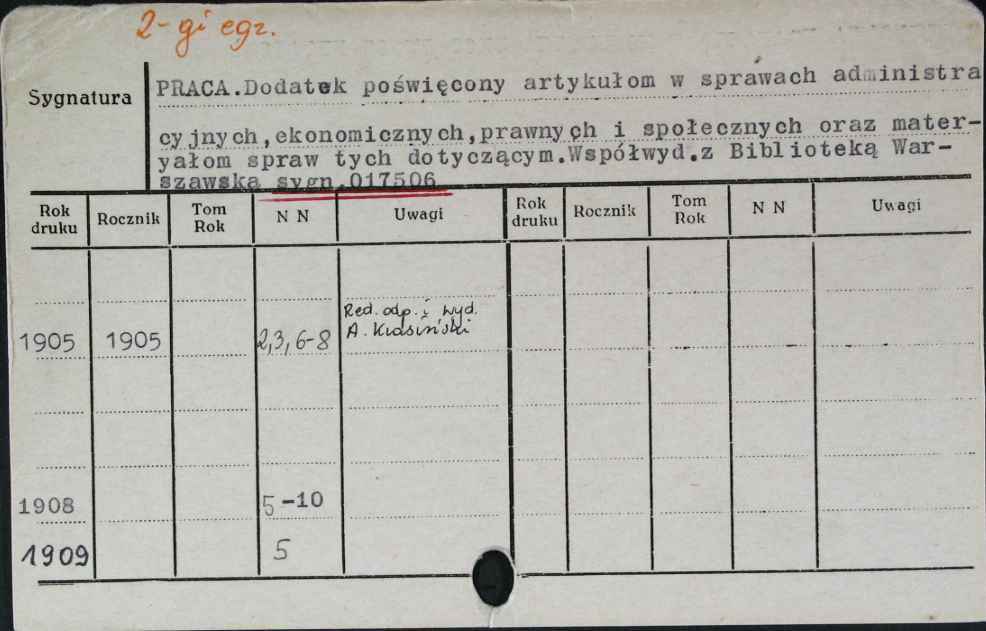 2-gi egz.
Sygnatura
PRACA.Dodatek poświęcony artykułom w sprawach administra
cyjnych,ekonomicznych,prawnych i społecznych oraz mater-
yałom spraw tych dotyczącym.Współwyd.z Biblioteką War-
szawską sygn.017506
Rok druku Rocznik Tom Rok N N Uwagi Rok druku Rocznik Tom Rok N N Uwagi
Red. odp. i wyd.
1905 1905 2,3,6-8 A. Krasiński
1908 5-10
1909 5